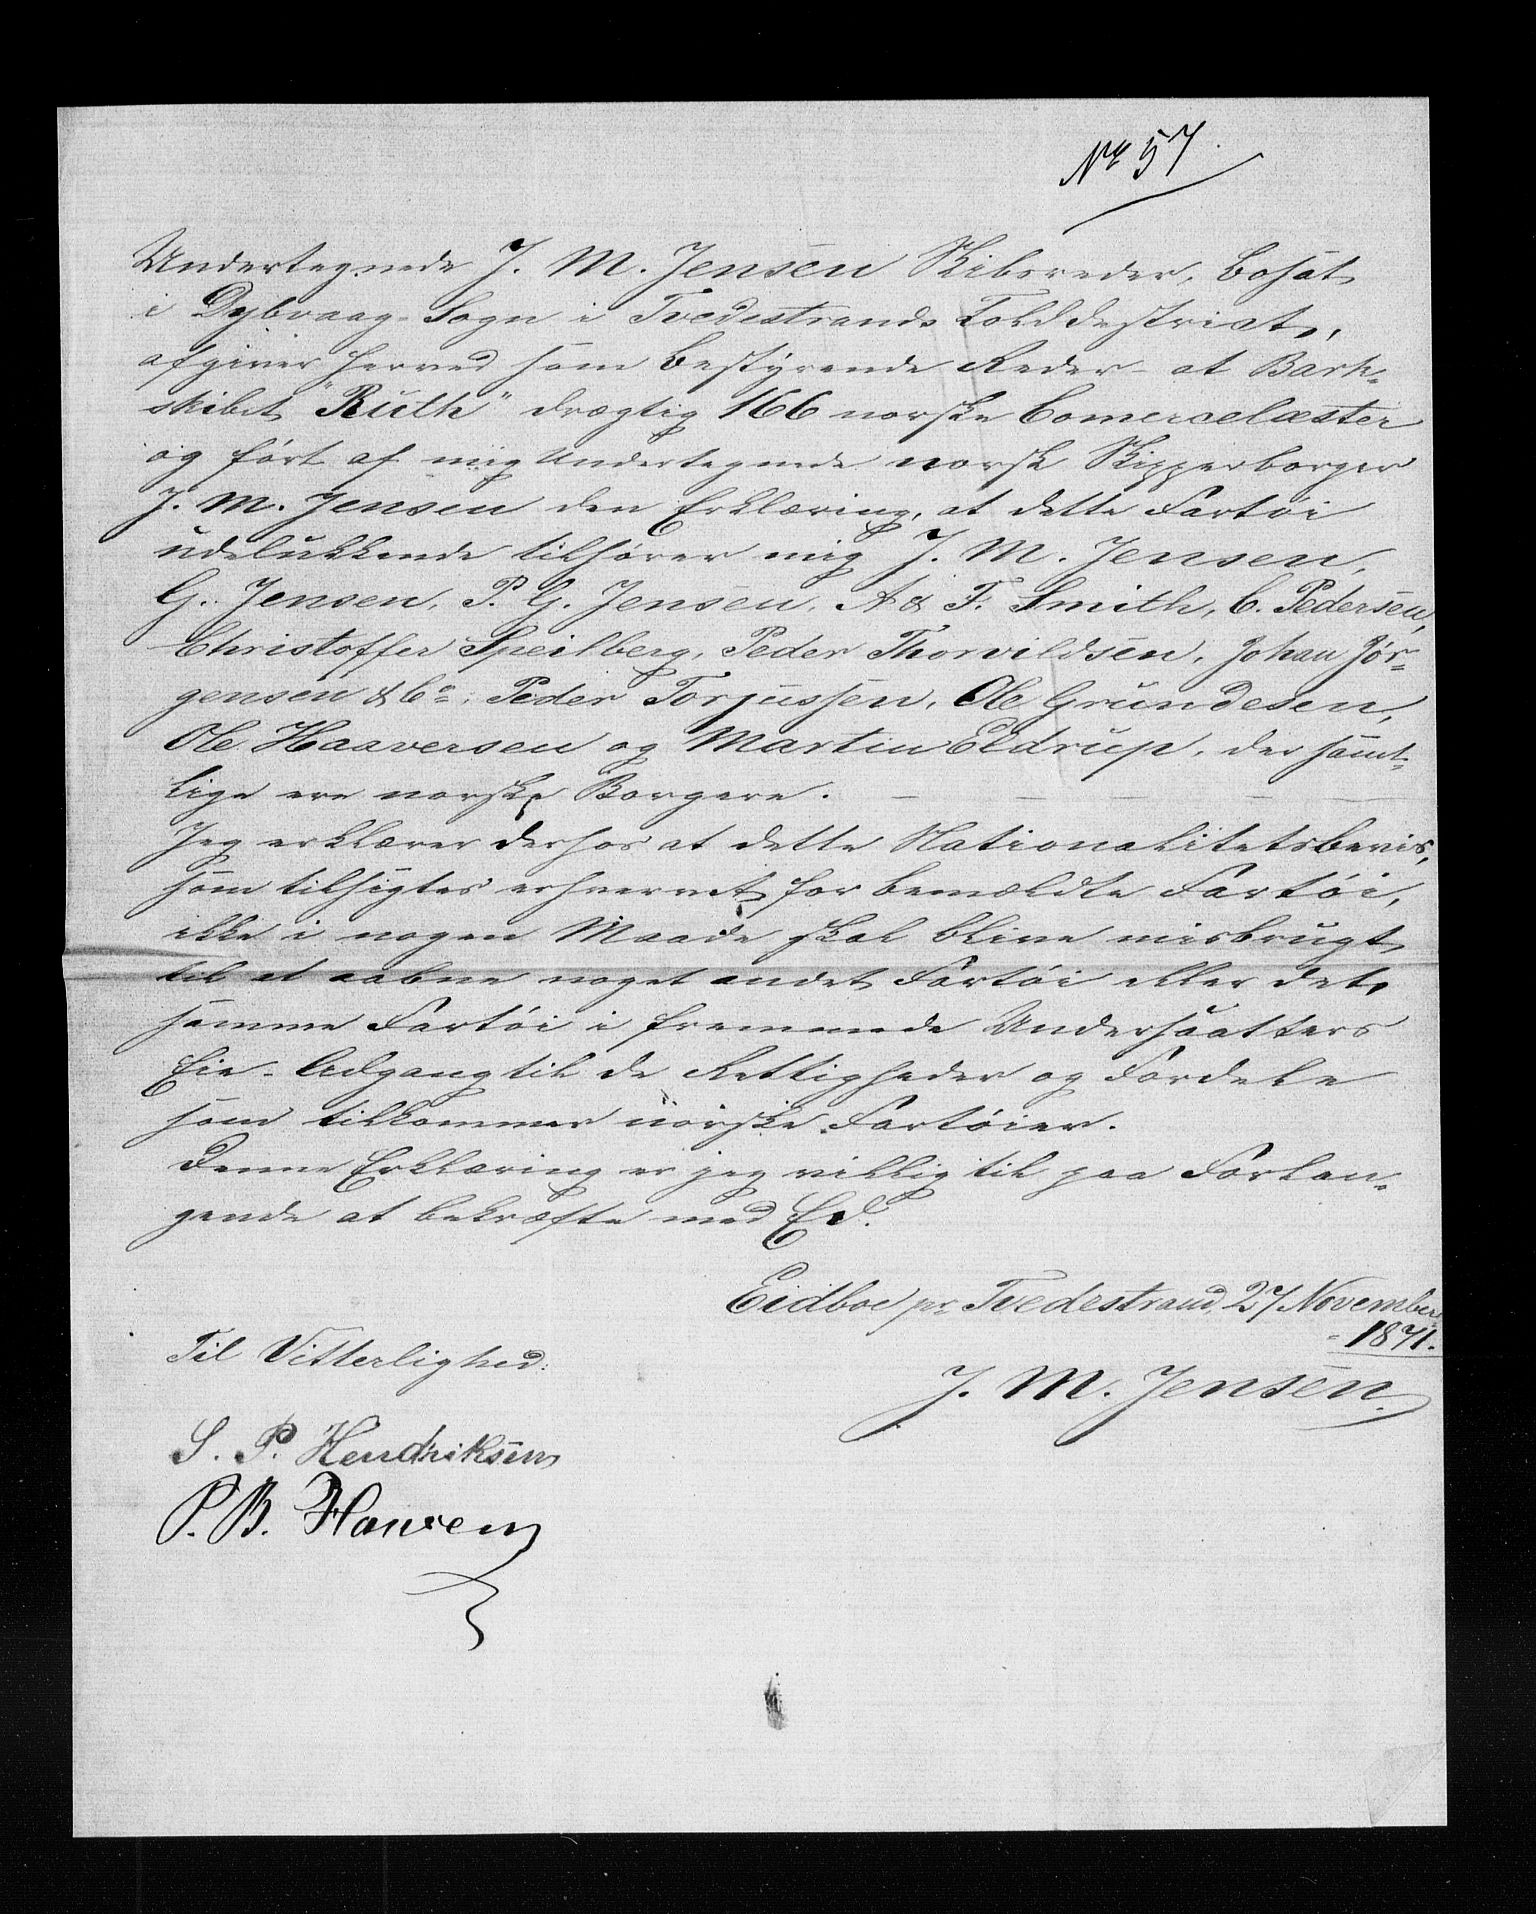 No 57.
Undertegnede J. M. Jensen Skibsreder, bosat
i Dybvaag-Sogn i Tvedestrands Tolddestrict,
afgiver herved som bestyrende Reder at Bark-
skibet "Ruth" drægtig 166 norske Comercelæster
og ført af mig Undertegnede norsk Skipperborger
J. M. Jensen den Erklæring, at dette Fartøi
udelukkende tilhører mig J. M. Jensen,
G. Jensen, P. G. Jensen, A & F. Smith, C. Pedersen,
Christoffer Speilberg, Peder Thorvildsen, Johan Jør-
gensen & Co, Peder Torjussen, Ole Grundesen,
Ole Haaversen og Martin Eldrup, der samt-
lige ere norske Borgere.
Jeg erklærer derhos at dette Nationalitetsbevis,
som tilsigtes erhvervet for bemældte Fartøi,
ikke i nogen Maade skal blive misbrugt
til at aabne noget andet Fartøi eller det
samme Fartøi i fremmede Undersaatters
Eie - Adgang til de Rettigheder og Fordele
som tilkommer norske Fartøier.
Denne Erklæring er jeg villig til paa Forlan-
gende at bekræfte med Ed.
Eidboe pr Tvedestrand, 27 November
1871.
Til Vitterlighed:
J. M. Jensen
S. P. Hendriksen
P. B. Hansen